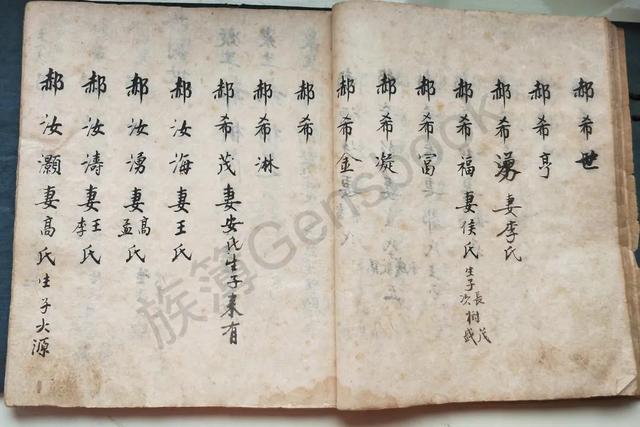 郝希世
郝希亨
郝希湧 妻李氏
郝希福 妻侯氏 生子 長樹茂 次樹盛
郝希富
郝希凝
郝希金
郝希
郝希淋
郝希茂 妻安氏生子来有
郝汝海 妻王氏
郝汝湧 妻高孟氏
郝汝濤 妻王李氏
郝汝灝 妻高氏 生子大源
族簿Gensbook